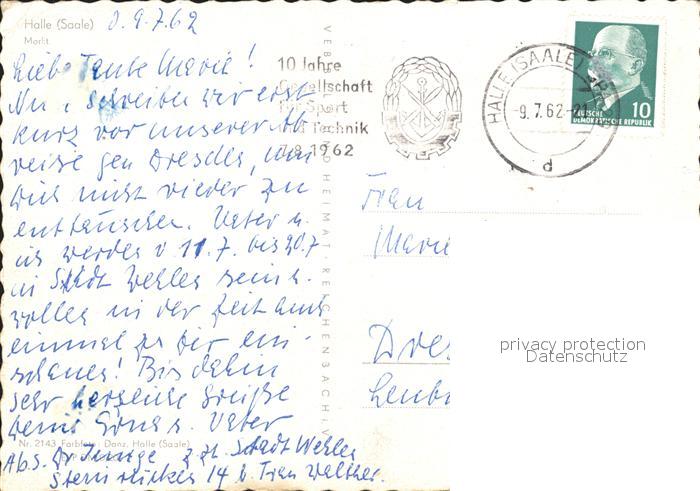 Halle (Saale) d. 9.7.62
Markt
Liebe Tante Marie!
Nun schreiben wir erst
kurz vor unserer Ab
reise gen Dresden, um
dich nicht wieder zu
enttäuschen. Vater u.
ich werden v 11.7. bis 20.7
in Stadt Wehlen sein u.
wollen in der Zeit auch
einmal zu dir ein-
schauen! Bis dahin
sehr herzliche Grüße
deine u. Vater
Nr. 2143 Farbfoto: Danz, Halle (Saale)
Abs. Dr z. Zt. Stadt Wehlen
14 b. Frau Walther.
VEB HEIMAT-REICHENBACH i. V.
10 Jahre
Gesellschaft
für Sport
und Technik
7.8.1962
HALLE (SAALE)
-9.7.62-21
d
10
DEUTSCHE
DEMOKRATISCHE REPUBLIK
Frau
Marie
Dres
Leub
privacy protection
Datenschutz